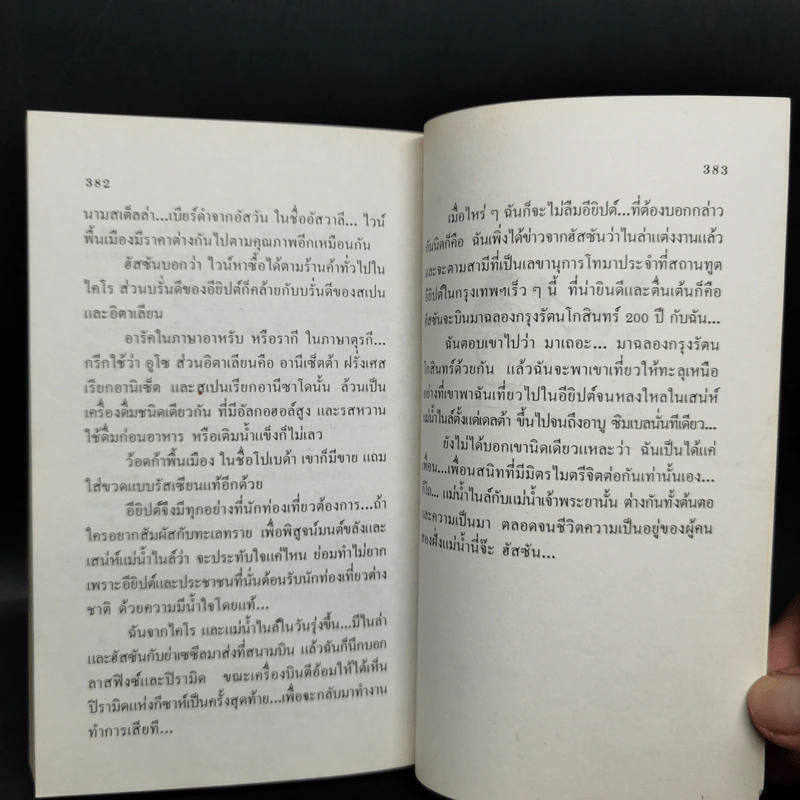 382
นามสเต็ลล่า...เบียร์ดำจากอัสวัน ในชื่ออัสวาลี... ไวน์
พื้นเมืองมีราคาต่างกันไปตามคุณภาพอีกเหมือนกัน
ฮัสซันบอกว่า ไวน์หาซื้อได้ตามร้านค้าทั่วไปใน
ไคโร ส่วนบรั่นดีของอียิปต์ก็คล้ายกับบรั่นดีของสเปน
และอิตาเลียน
อารัคในภาษาอาหรับ หรือรากี ในภาษาตุรกี...
กรีกใช้ว่า อูโซ ส่วนอิตาเลียนคือ อานีเซ็ตต้า ฝรั่งเศส
เรียกอานิเซ็ต และสเปนเรียกอานีซาโดนั้น ล้วนเป็น
เครื่องดื่มชนิดเดียวกัน ที่มีอัลกอฮอล์สูง และรสหวาน
ใช้ดื่มก่อนอาหาร หรือเติมน้ำแข็งก็ไม่เลว
ว้อดก้าพื้นเมือง ในชื่อโปเบด้า เขาก็มีขาย แถม
ใส่ขวดแบบรัสเซียนแท้อีกด้วย
อียิปต์จึงมีทุกอย่างที่นักท่องเที่ยวต้องการ...ถ้า
ใครอยากสัมผัสกับทะเลทราย เพื่อพิสูจน์มนต์ขลังและ
เสน่ห์แม่น้ำไนล์ว่า จะประทับใจแค่ไหน ย่อมทำไม่ยาก
เพราะอียิปต์และประชาชนที่นั่นต้อนรับนักท่องเที่ยวต่าง
ชาติ ด้วยความมีน้ำใจโดยแท้...
ฉันจากไคโร และแม่น้ำไนล์ในวันรุ่งขึ้น...มีไนล่า
และฮัสซันกับย่าเซซีลมาส่งที่สนามบิน แล้วฉันก็นึกบอก
ลาสฟิงซ์และปิรามิด ขณะเครื่องบินตีอ้อมให้ได้เห็น
ปิรามิดแห่งกีซาห์เป็นครั้งสุดท้าย...เพื่อจะกลับมาทำงาน
ทำการเสียที...
383
เมื่อไหร่ ๆ ฉันก็จะไม่ลืมอียิปต์...ที่ต้องบอกกล่าว
กันนิดก็คือ ฉันเพิ่งได้ข่าวจากฮัสซันว่าไนล่าแต่งงานแล้ว
และจะตามสามีที่เป็นเลขานุการโทมาประจำที่สถานทูต
อียิปต์ในกรุงเทพฯเร็ว ๆ นี้ ที่น่ายินดีและตื่นเต้นก็คือ
ฮัสซันจะบินมาฉลองกรุงรัตนโกสินทร์ 200 ปี กับฉัน...
ฉันตอบเขาไปว่า มาเถอะ... มาฉลองกรุงรัตน
โกสินทร์ด้วยกัน แล้วฉันจะพาเขาเที่ยวให้ทะลุเหนือ
อย่างที่เขาพาฉันเที่ยวไปในอียิปต์จนหลงใหลในเสน่ห์
แม่น้ำไนล์ตั้งแต่เดลต้า ขึ้นไปจนถึงอาบู ซิมเบลนั่นทีเดียว...
ยังไม่ได้บอกเขานิดเดียวแหละว่า ฉันเป็นได้แค่
เพื่อน...เพื่อนสนิทที่มีมิตรไมตรีจิตต่อกันเท่านั้นเอง...
ก็ไถ... แม่น้ำไนล์กับแม่น้ำเจ้าพระยานั้น ต่างกันทั้งต้นตอ
และความเป็นมา ตลอดจนชีวิตความเป็นอยู่ของผู้คน
สองฝั่งแม่น้ำนี่จ๊ะ ฮัสซัน...